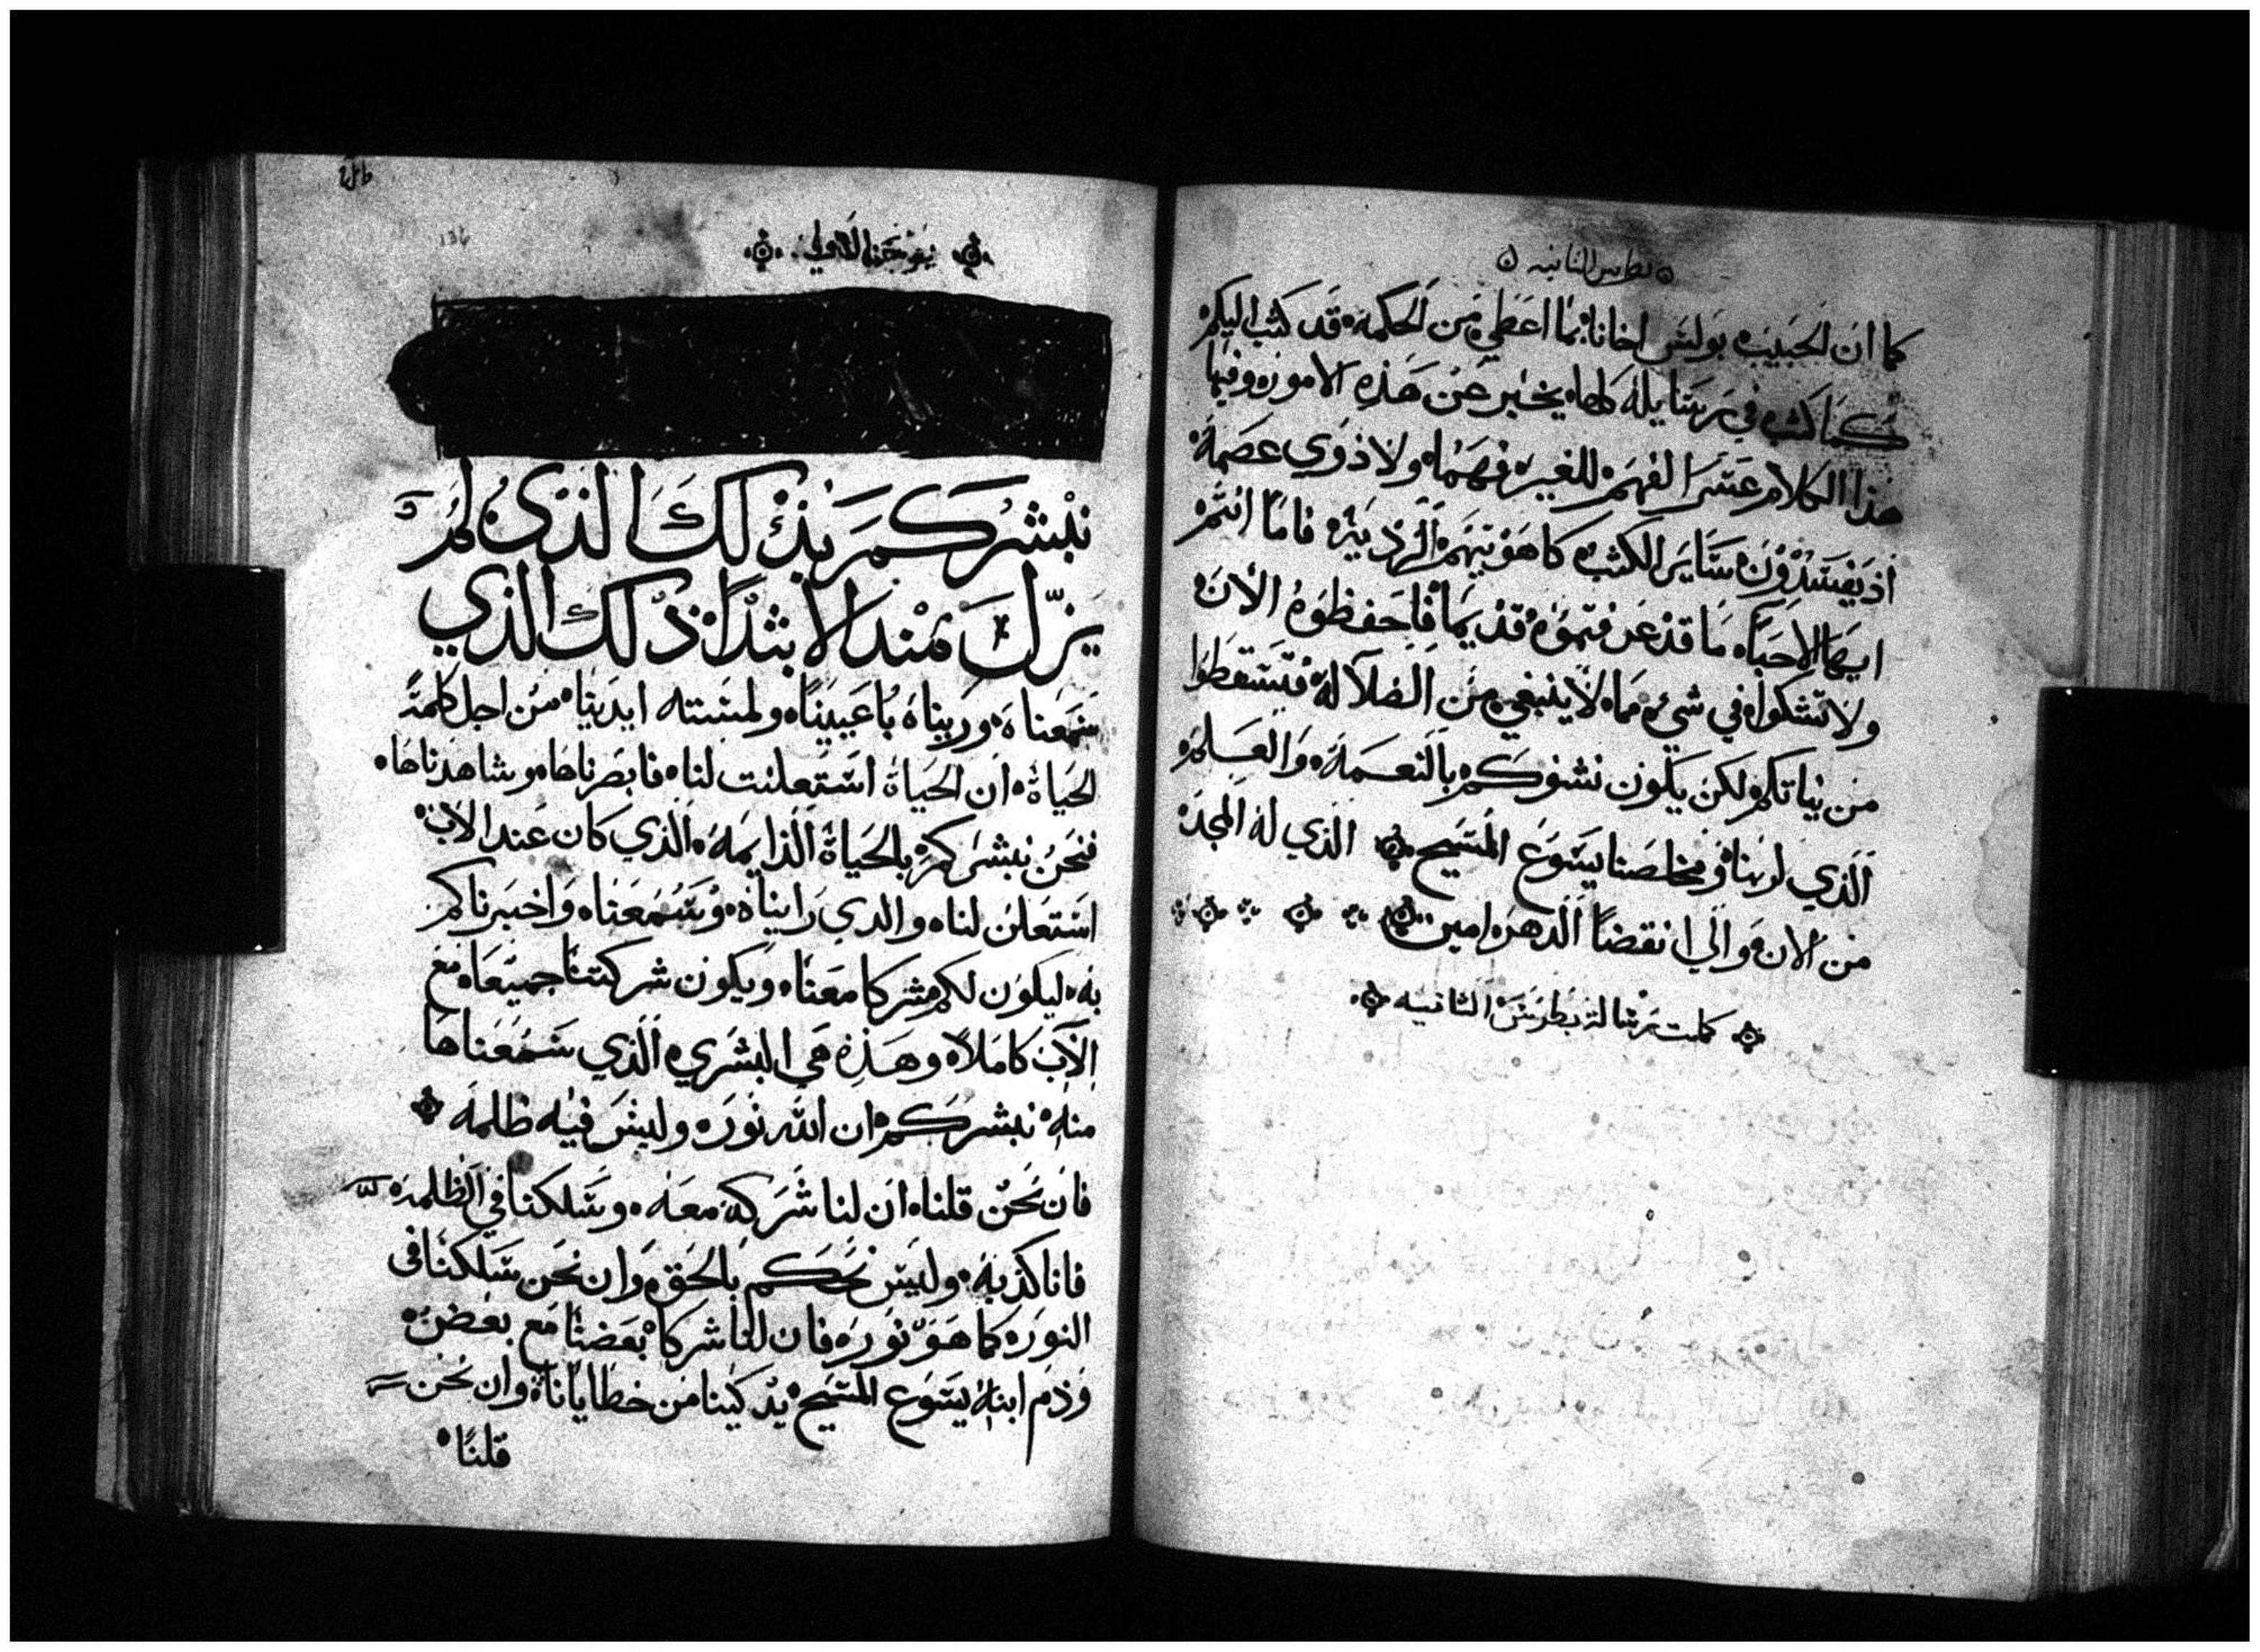 بطرس الثانيه
كما ان الحبيب بولس اخانا بما اعطي من الحكمه قد كتب اليكم
كما كتب في رسايله كلها يخبر عن هذه الامور وفيها
هذا الكلام عسر الفهم للغير فهما ولا ذوي عصمة
اذ يفسدون ساير الكتب كما هو تيهم الرديه فاما انتم
ايها الاحباء ما قد عرفتموه قديما فاحفظوه الان
ولا تشكوا في شي مما لا ينبغي من الضلاله فتسقطوا
من نياتكم لكن يكون نشوكم بالنعمه والعلم
الذي لربنا ومخلصنا يسوع المسيح الذي له المجد
من الان والي انقضا الدهر امين
كملت رسالة بطرس الثانيه
136
يوحنا الاولي
نبشركم بذلك الذي لم
يزل منذ الابتدا ذلك الذي
سمعناه وريناه باعيننا ولمسته ايدينا من اجل كلمة
الحياة ان الحياة استعلنت لنا فابصرناها وشاهدناها
فنحن نبشركم بالحياة الدايمه الذي كان عند الاب
استعلن لنا والدي رايناه وسمعناه واخبرناكم
به ليكون لكم شركا معنا ويكون شركتنا جميعا مع
الاب كاملا وهذه هي البشري الذي سمعناها
منه نبشركم ان الله نور وليس فيه ظلمه
فان نحن قلنا ان لنا شركة معه وسلكنا في الظلمه
فانا كذبه وليس نحكم بالحق وان نحن سلكنا في
النور كما هو نور فان لنا شركا بعضنا مع بعض
ودم ابنه يسوع المسيح يدكينا من خطايانا وان نحن
قلنا